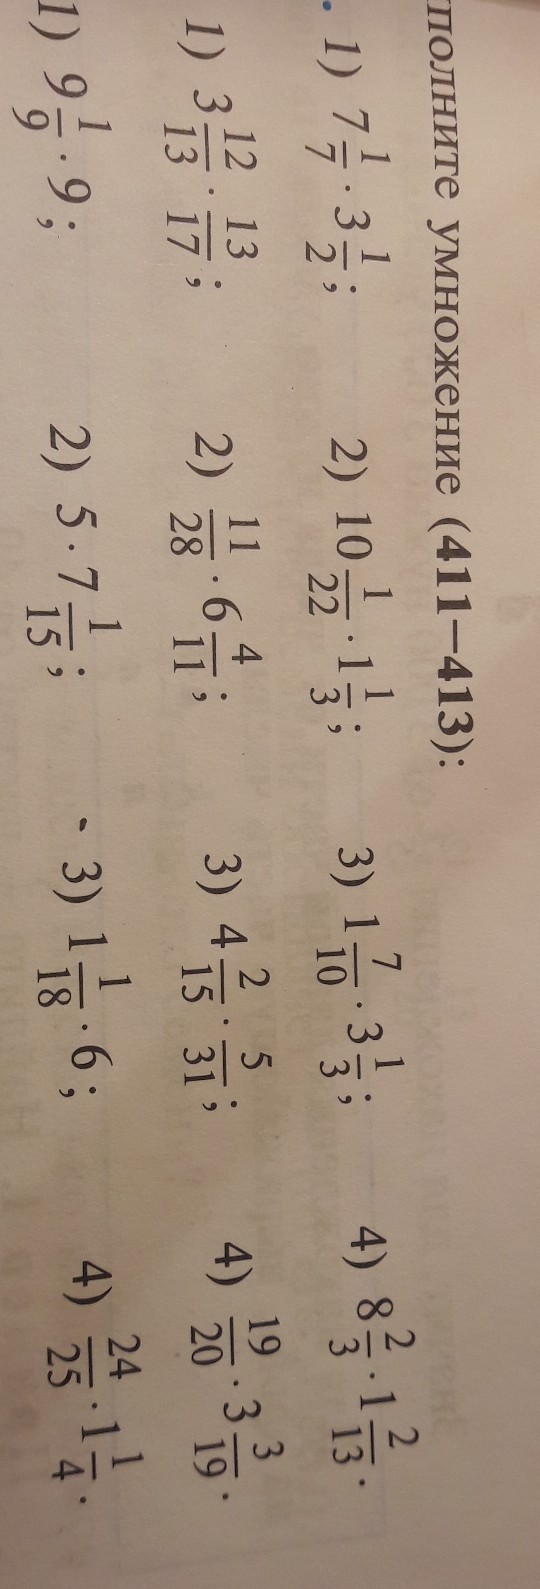 полните умножение (411—413):
. 1) 7 1/7 · 3 1/2; 2) 10 1/22 · 1 1/3; 3) 1 7/10 · 3 1/3; 4) 8 2/3 · 1 2/13.
1) 3 12/13 · 13/17; 2) 11/28 · 6 4/11; 3) 4 2/15 · 5/31; 4) 19/20 · 3 3/19.
1) 9 1/9 · 9; 2) 5 · 7 1/15; 3) 1 1/18 · 6; 4) 24/25 · 1 1/4.